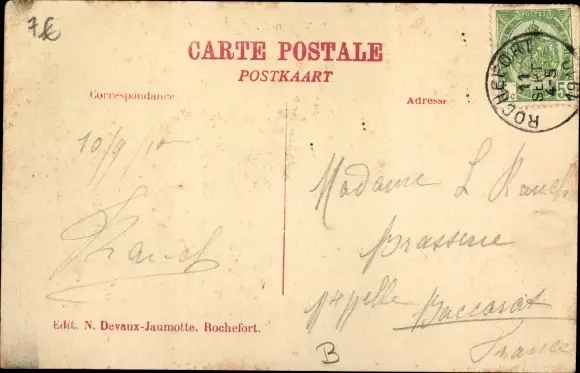 7€
CARTE POSTALE
POSTKAART
Correspondance
Adresse
ROCHEFORT
11
SEPT
5
10/9/10
Madame L
Brasserie
Baccarat
France
Edit. N. Devaux-Jaumotte. Rochefort.
B